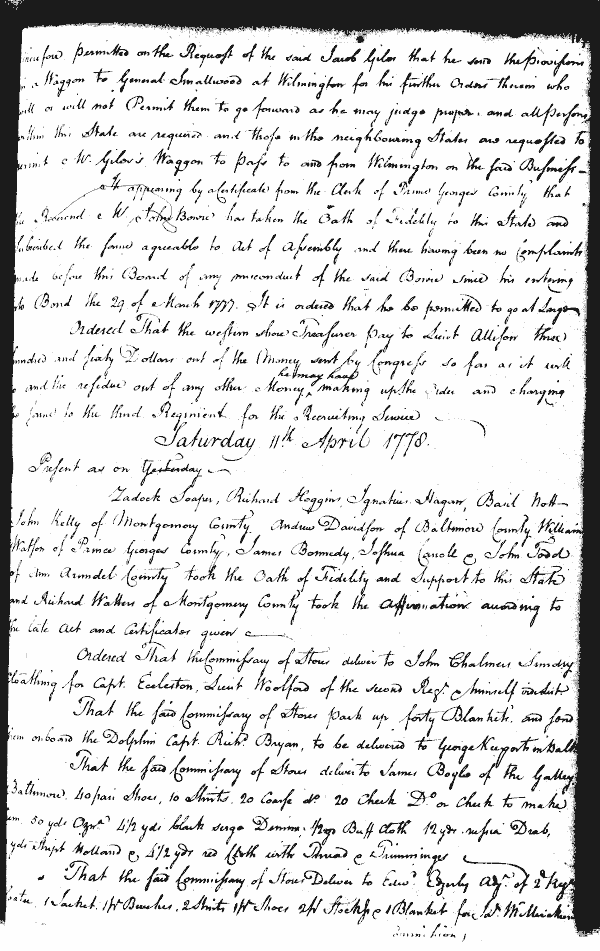 permitted on the Request of the said Jacob Giles that he send the provisions
Waggon to General Smallwood at Wilmington for his further Orders therein who
will or will not Permit them to go forward as he may judge proper. and all Persons
within this State are required and those in the neighbouring States are requested to
permit Mr. Giles's Waggon to Pass to and from Wilmington on the said Business—
It appearing by a Certificate from the Clerk of Prince Georges County that
the Reverend Mr. John Bowie has taken the Oath of Fidelity to this State and
subscribed the same agreeable to Act of Assembly and there having been no Complaints
made before this Board of any misconduct of the said Bowie since his entering
Bond the 29 of March 1777. It is ordered that he be permitted to go at Large
Ordered That the western shore Treasurer pay to Lieut Allison three
hundred and sixty Dollars out of the Money sent by Congress so far as it will
he may have
and the residue out of any other Money making up the and charging
the same to the third Regiment for the Recruiting Service
Saturday 11th April 1778.
Present as on Yesterday
Zadock Soaper, Richard Hoggins, Ignatius Hagan, Basil Nott
John Kelly of Montgomery County, Andrew Davidson of Baltimore County William
Watson of Prince Georges County, James Bonnedy, Joshua Cavoll & John Todd
of Ann Arundel County took the Oath of Fidelity and Support to this State
and Richard Watters of Montgomery County took the Affirmation according to
the late Act and Certificates given
Ordered That the Commissary of Stores deliver to John Chalmers Sundry
Cloathing for Capt. Eccleston, Lieut Woolford of the second Regt. & himself
That the said Commissary of Stores pack up forty Blankets. and send
them on board the Dolphin Capt. Richd. Bryan, to be delivered to George Keeports in Balt
That the said Commissary of Stores deliver to James Boyle of the Galley
Baltimore. 40 pair Shoes, 10 Shirts, 20 Coarse do. 20 Check Do. or Check to make
em. 50 yds Ozn. 4 1/2 yds black serge Denim. Buff Cloth 12 yds. russia Drab,
yds stript Holland & 4 1/2 yds red Cloth with Thread & Trimmings
That the said Commissary of Stores Deliver to Edwd. Edgerly Adjt. of 2d Regt
1 Jacket, 1 pr Breeches, 2 Shirts 1 pr Shoes 2 pr Stocks & 1 Blanket for